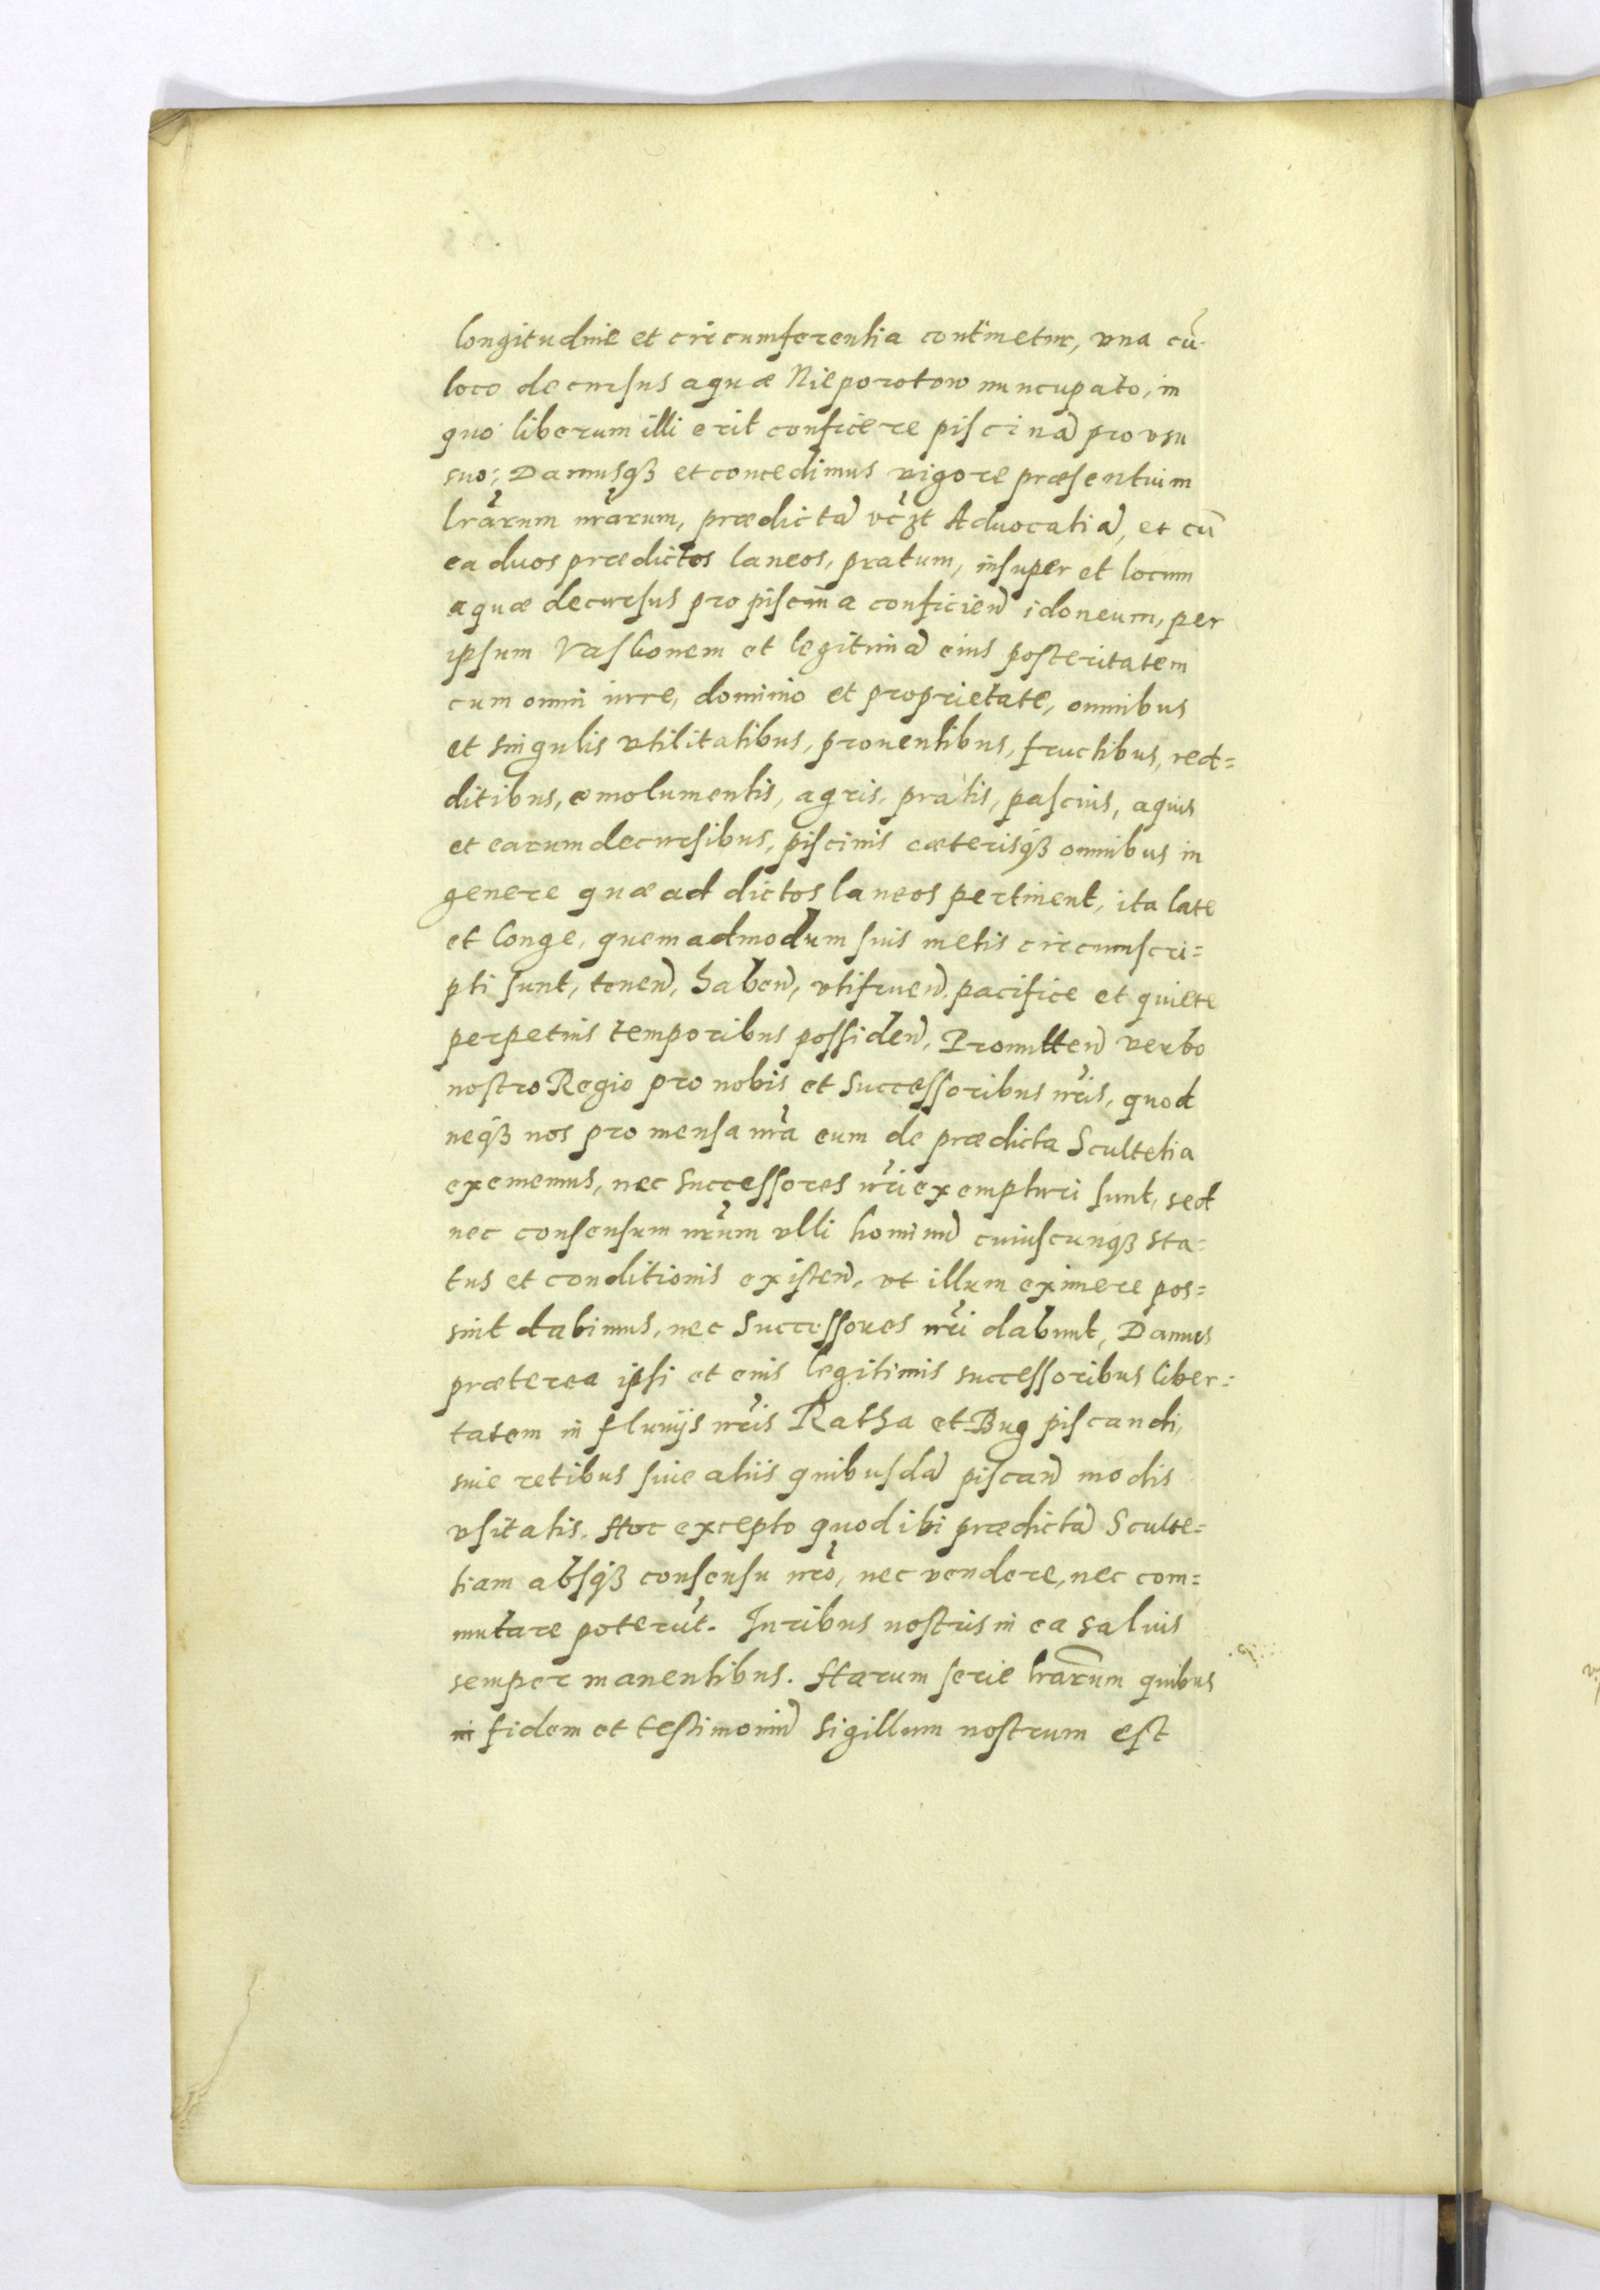 longitudine et circumferentia continetur, vna cū
loco decursus aquæ Nieporotow nuncupato, in
quo liberum illi erit conficere piscinā pro vsu
suo; Damusqꝫ et concedimus vigore præsentium
lrārum nrārum, prædictā vcꝫt Aduocatiā, et cū
ea duos prædictos laneos, pratum, insuper et locum
aquæ decursus pro piscina conficien̄ idoneum, per
ipsum Vaskonem et legitimā eius posteritatem
cum omni iure, dominio et proprietate, omnibus
et singulis vtilitatibus, prouentibus, fructibus, red=
ditibus, emolumentis, agris, pratis, pascuis, aquis
et earum decursibus, piscinis cæterisqꝫ omnibus in
genere quæ ad dictos laneos pertinent, ita late
et longe, quemadmodum suis metis circumscri=
pti sunt, tenen̄, haben̄, vtifruen̄ pacifice et quiete
perpetuis temporibus possiden̄, Promitten̄ verbo
nostro Regio pro nobis et successoribus nr̄is, quod
neqꝫ nos pro mensa nr̄a eum de prædicta Scultetia
exememus, nec successores nr̄i exempturi sunt, sed
nec consensum nr̄um vlli hominū cuiuscunqꝫ sta=
tus et conditionis existen̄, vt illum eximere pos=
sint dabimus, nec Successores nr̄i dabunt, Damus
præterea ipsi et eius legitimis successoribus liber=
tatem in fluuijs nr̄is Ratha et Bug piscandi,
siue retibus siue aliis quibusdā piscan̄ modis
vsitatis. Hoc excepto quod ibi prædictā Sculte=
tiam absqꝫ consensu nr̄o, nec vendere, nec com=
mutare poterūt. Iuribus nostris in ea saluis
semper manentibus. Harum serie lrārum quibus
in fidem et testimoniū sigillum nostrum est